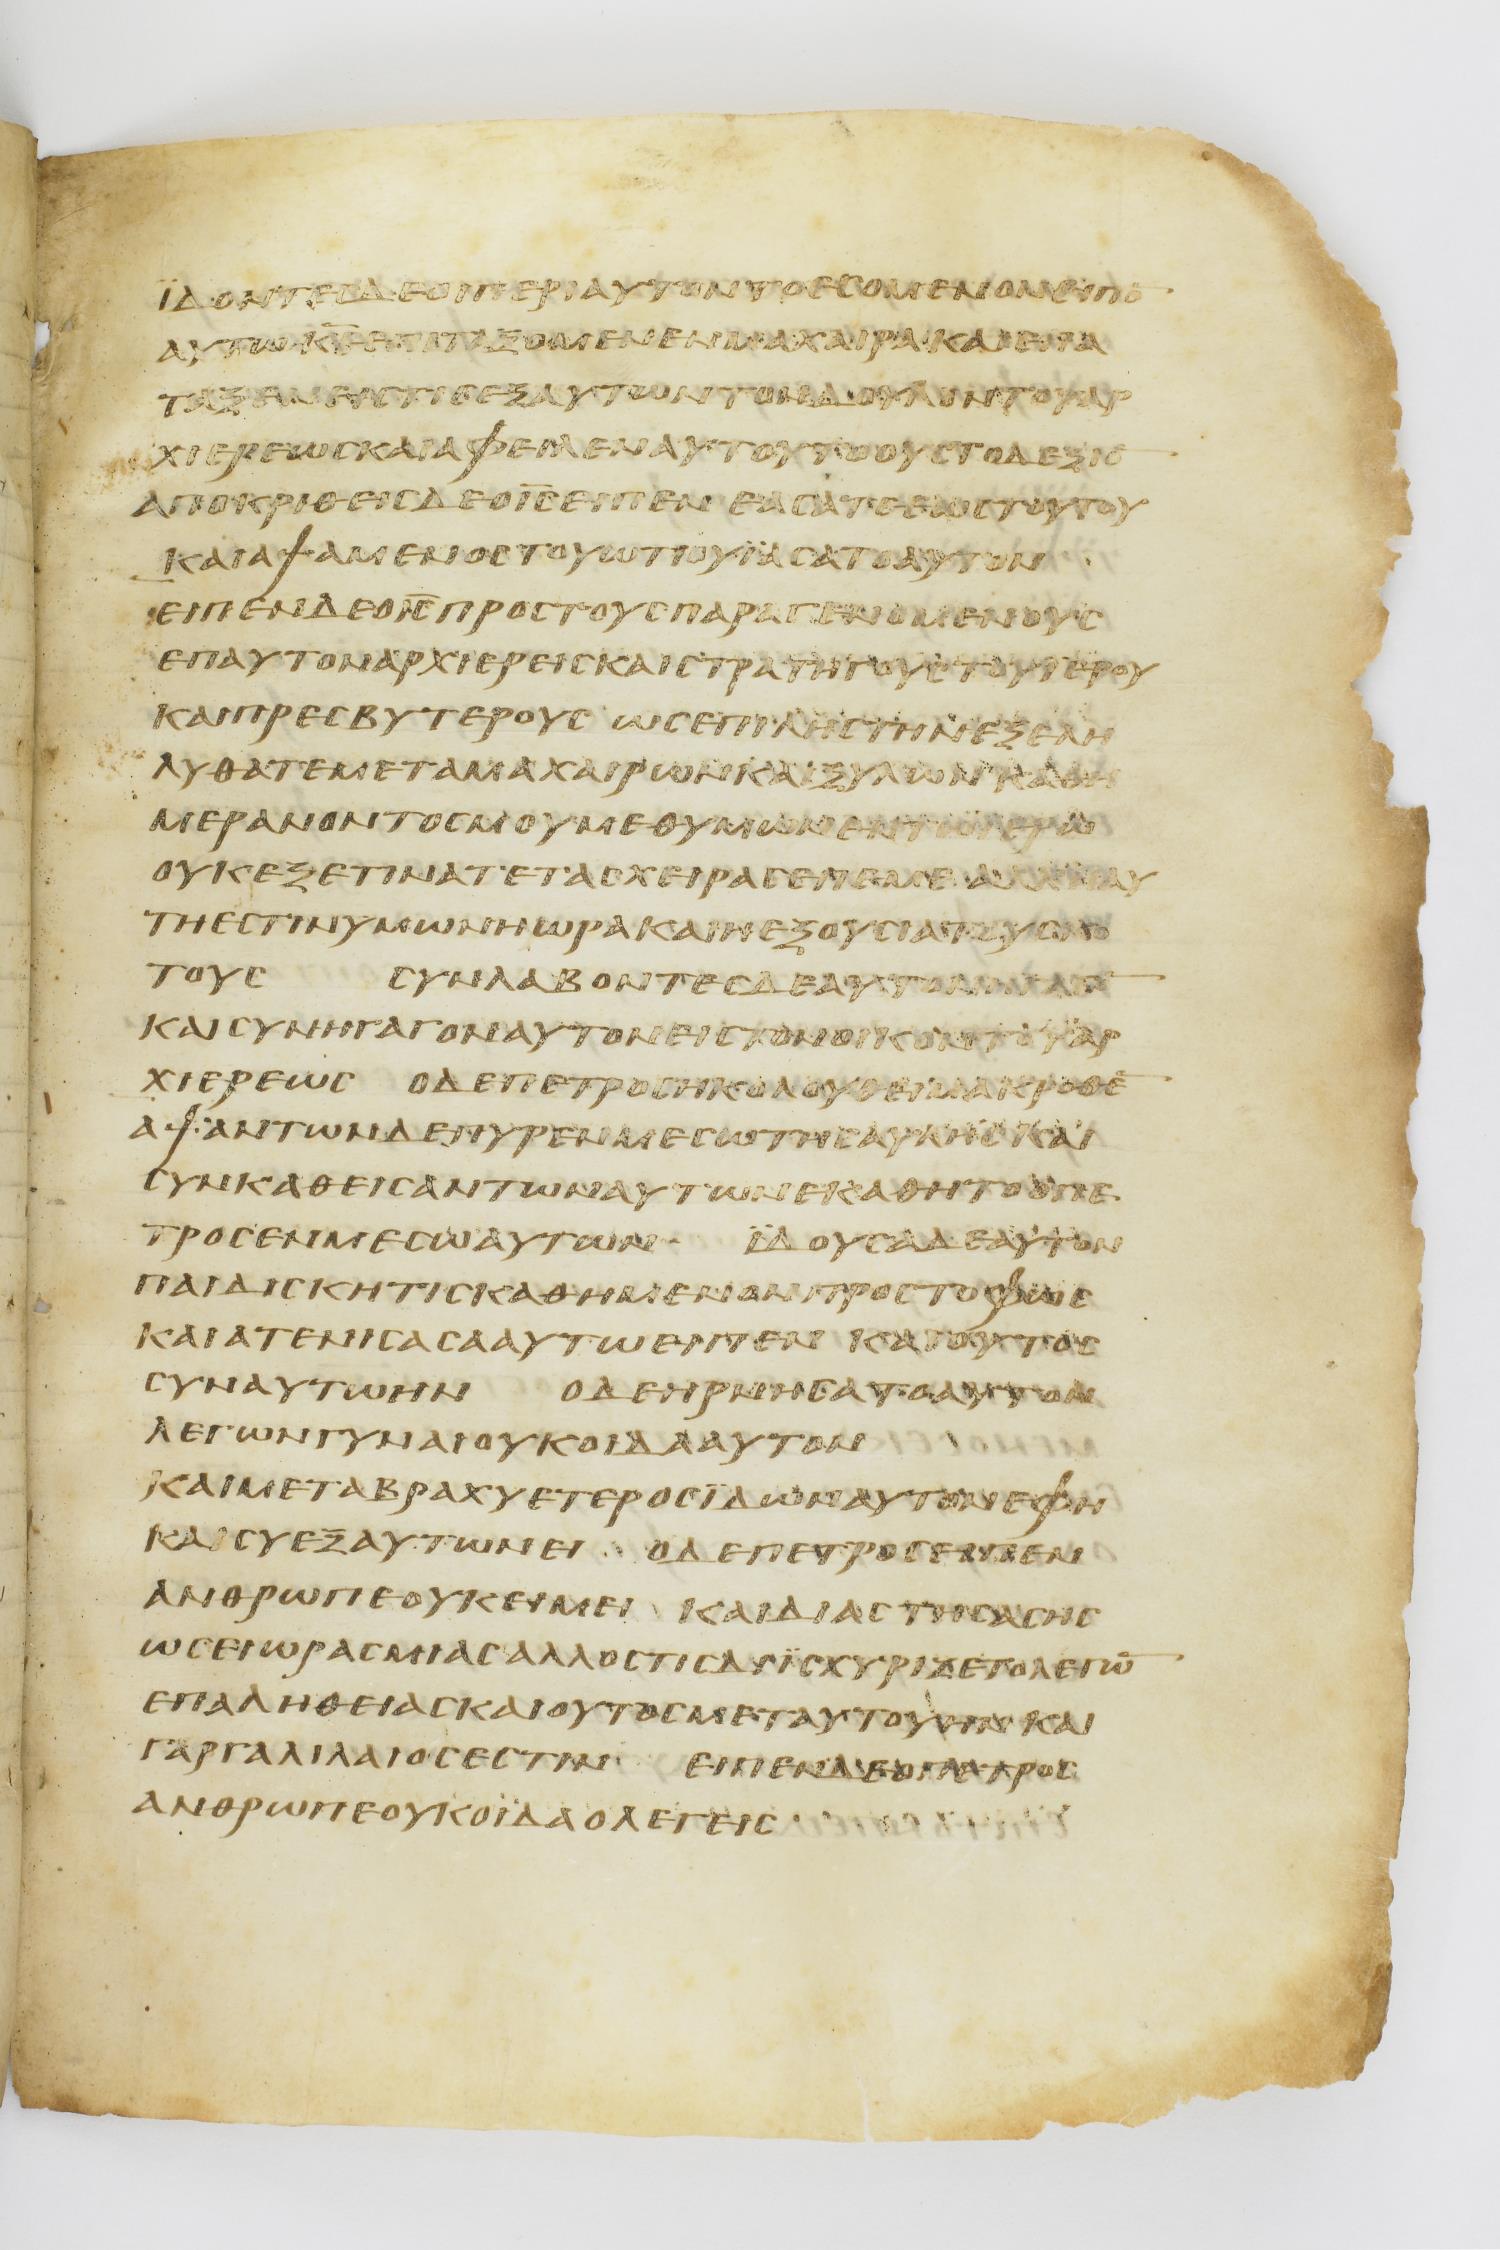 ϊδοντεσδεοιπεριαυτοντοεσομενονειπο
αυτωκ̅ε̅ειπαταξομενενμαχαιρακαιεπα
ταξενειστισεξαυτωντονδουλοντουαρ
χιερεωσκαιαφειλεναυτουτοουστοδεξιο
αποκριθεισδεοι̅σ̅ειπεν εασατεεωστουτου
καιαψαμενοστουωτιουϊασατοαυτον
ειπενδεοι̅σ̅προστουσπαραγενομενουσ
επαυτοναρχιερεισκαιστρατηγουστουϊερου
καιπρεσβυτερουσ ωσεπιληστηνεξελη
λυθατεμεταμαχαιρωνκαιξυλων
μερανοντοσμουμεθυμωνεντωϊερω
ουκεξετινατετασχειρασεπεμε αλλαυ
τηεστινυμωνηωρακαιηεξουσιατουσκο
τουσ συνλαβοντεσδεαυτονηγαγο
καισυνηγαγοναυτονεισ τονοικοντουαρ
χιερεωσ οδεπετροσηκολουθειμακροθε̅
αψαντωνδεπυρενμεσωτησαυλησκαι
συνκαθεισαντωναυτωνεκαθητοοπε
τροσενμεσωαυτων ϊδουσαδεαυτον
παιδισκητισκαθημενονπροστοφωσ
καιατενισασααυτωειπεν καιουτοσ
συναυτωην οδεηρνησατοαυτον
λεγωνγυναιουκοιδααυτον
καιμεταβραχυετεροσϊδωναυτονεφη
καισυεξαυτωνει οδεπετροσειπεν
ανθρωπεουκειμει καιδιαστησασησ
ωσειωρασμιασαλλοστισδιϊσχυριζετολεγω̅
επαληθειασκαιουτοσμεταυτουην και
γαργαλιλαιοσεστιν ειπενδεοπετροσ
ανθρωπεουκοϊδαολεγεισ